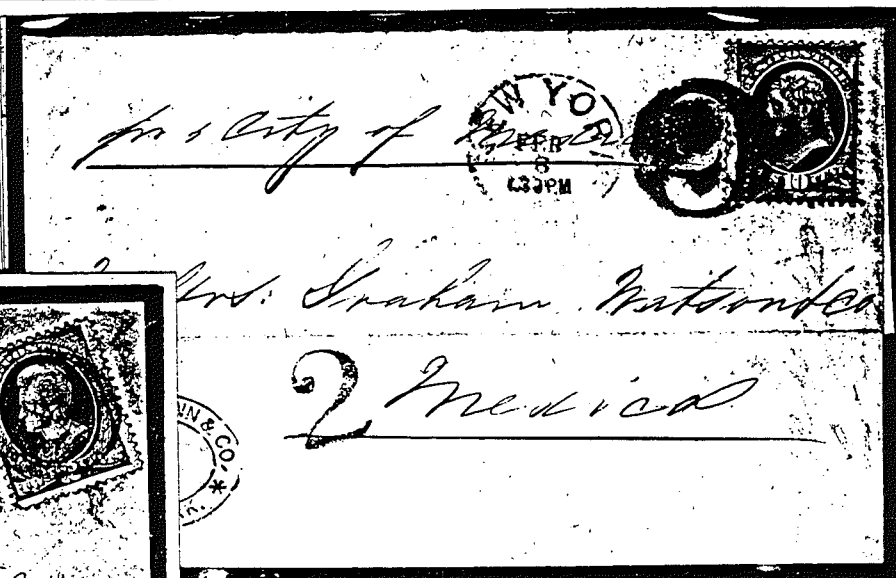 pr s City of
W YOR
FEB
8
4:30 PM
10
Mrs. Graham Watson & Co
2
Mexico
NN & CO.